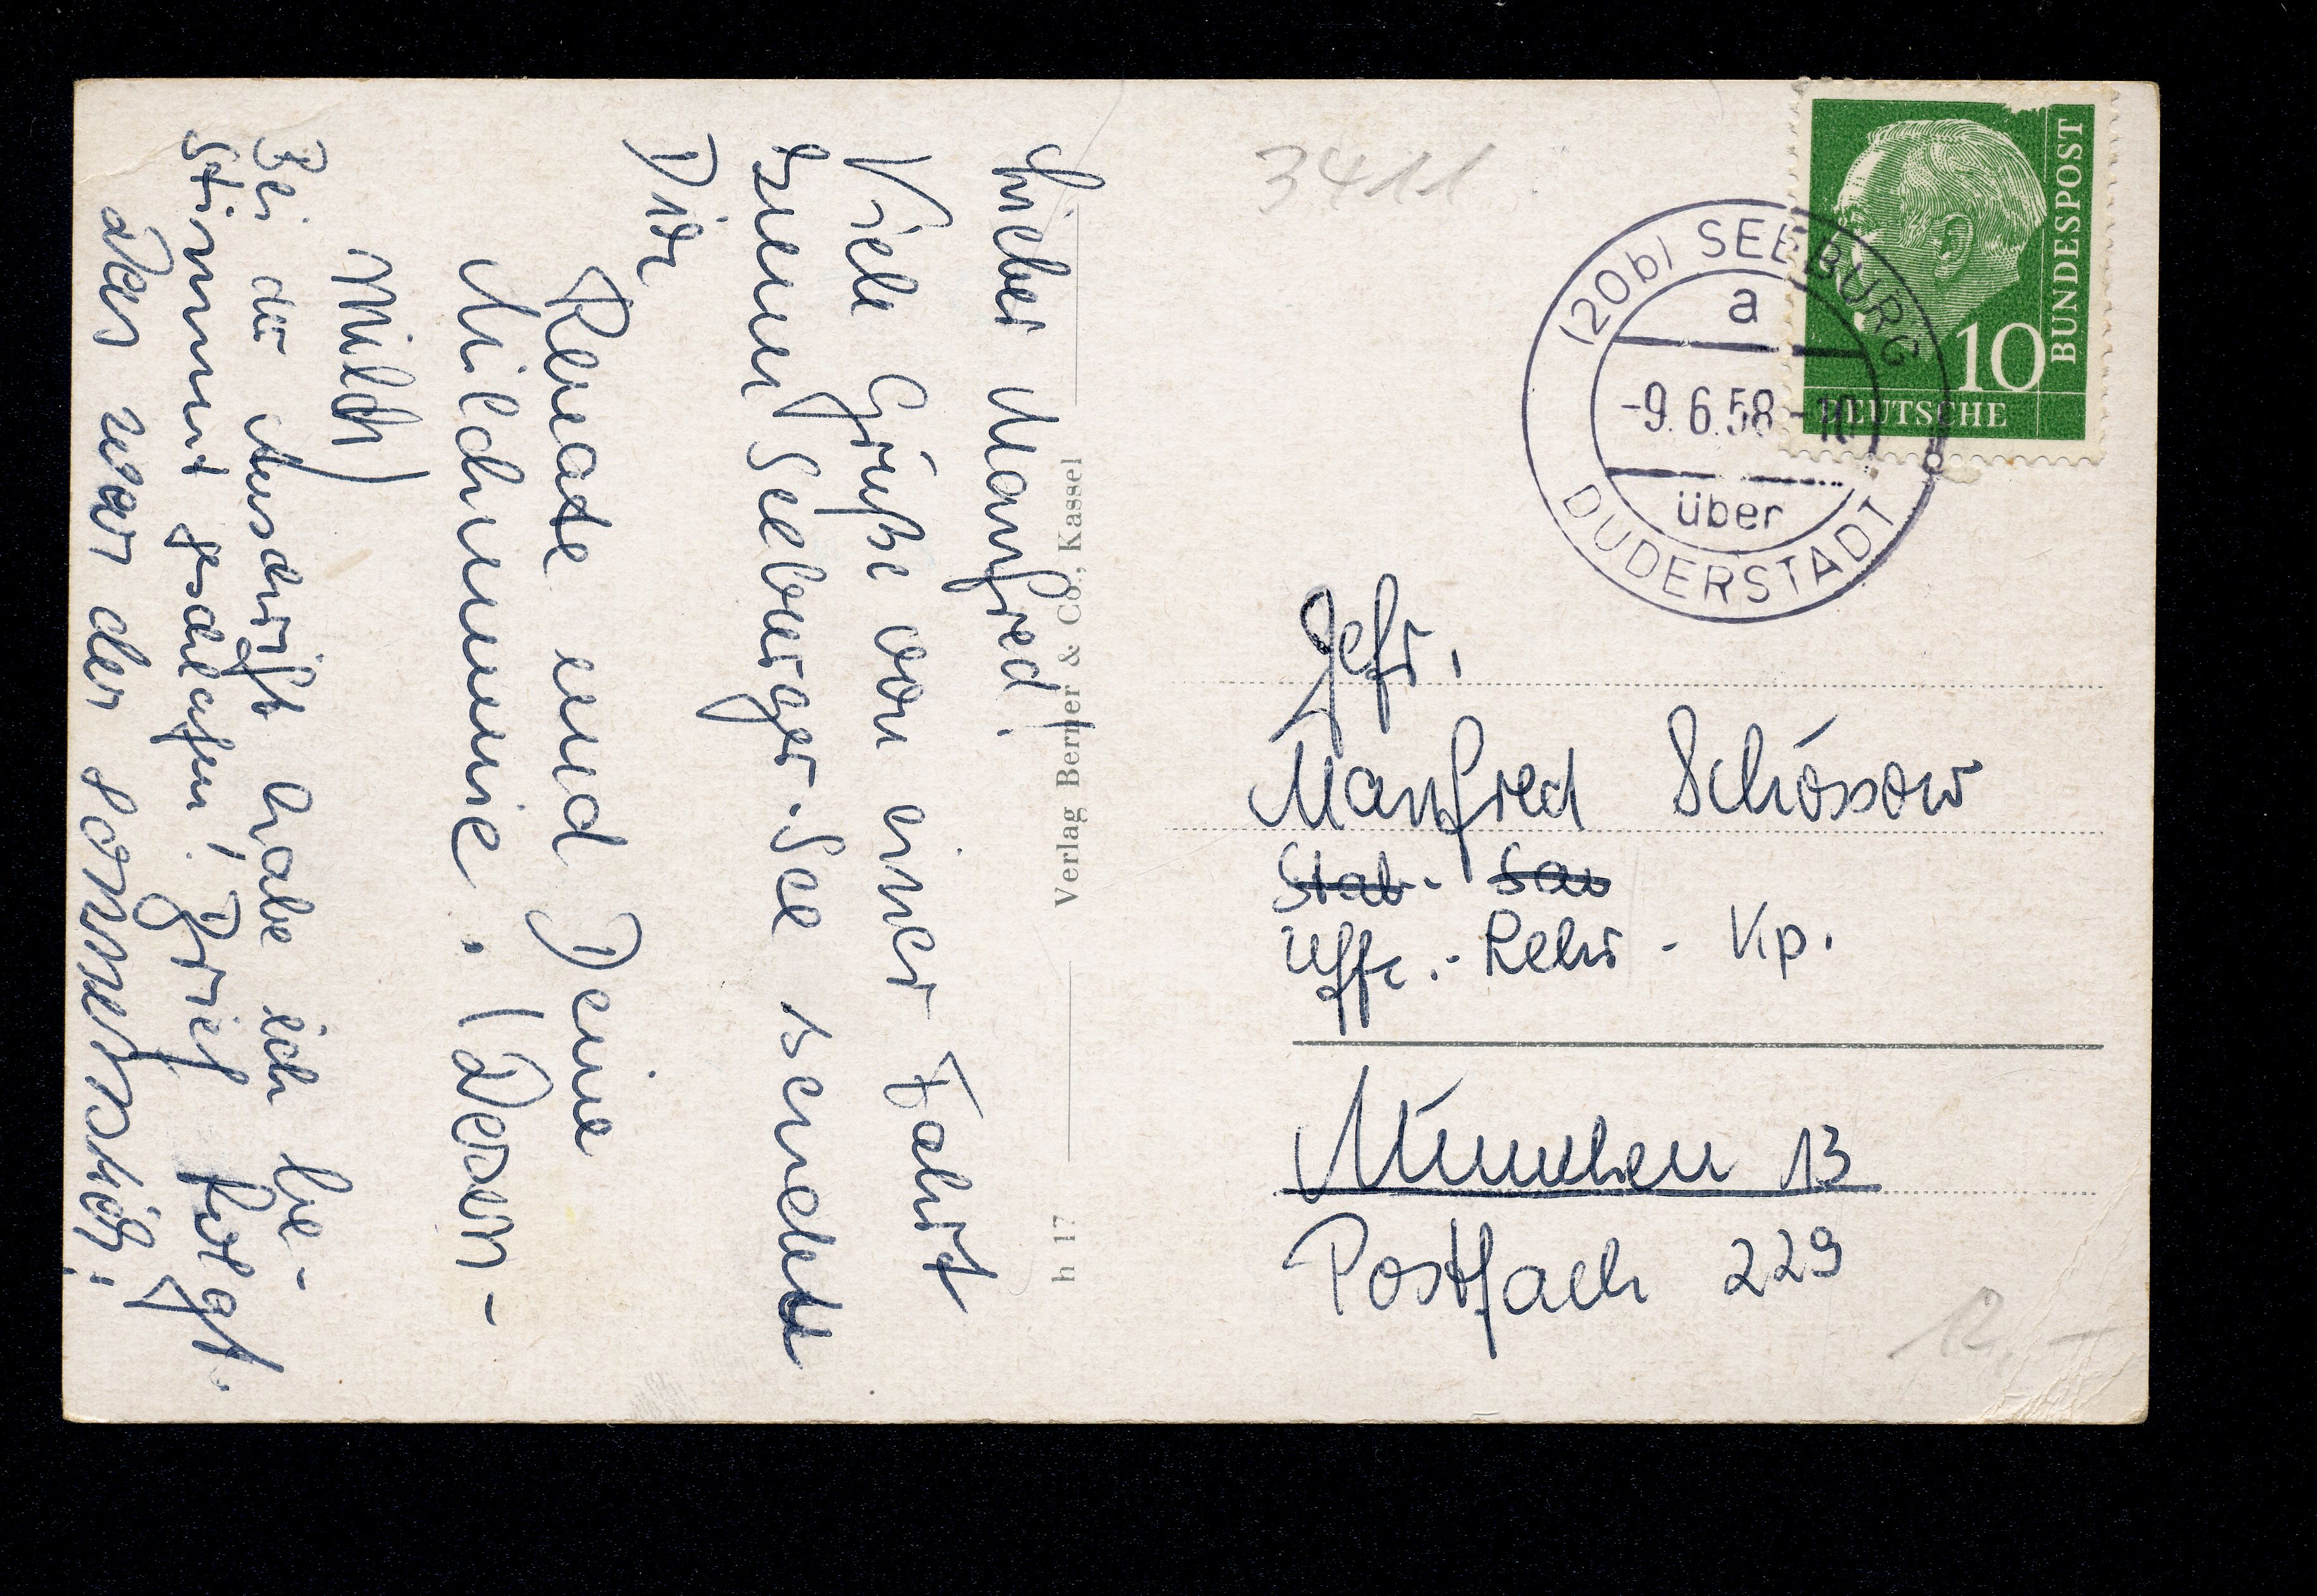 Lieber Manfred!
Viele Grüße von einer Fahrt
zum Seeburger-See sendet
Dir
Renate und Deine
Milchmumie. (Dosen-
Milch)
Bei der Anschrift habe ich be-
stimmt geschlafen! Brief folgt.
aber war der
Verlag Berner & Co., Kassel
h 17
3411
(20b) SEEBURG
a
-9.6.58-10
über
DUDERSTADT
10
DEUTSCHE
BUNDESPOST
Gefr.
Manfred Schössow
Stab.-
Uffz.-Lehr-Kp.
München 13
Postfach 229
12,-